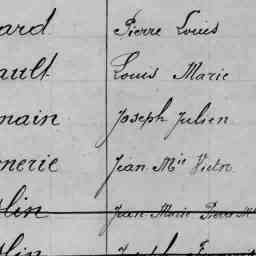 ard Pierre Louis
ault Louis Marie
main Joseph Julien
nerie Jean Mie Victor
lin Jean Marie Pierre
lin Joseph